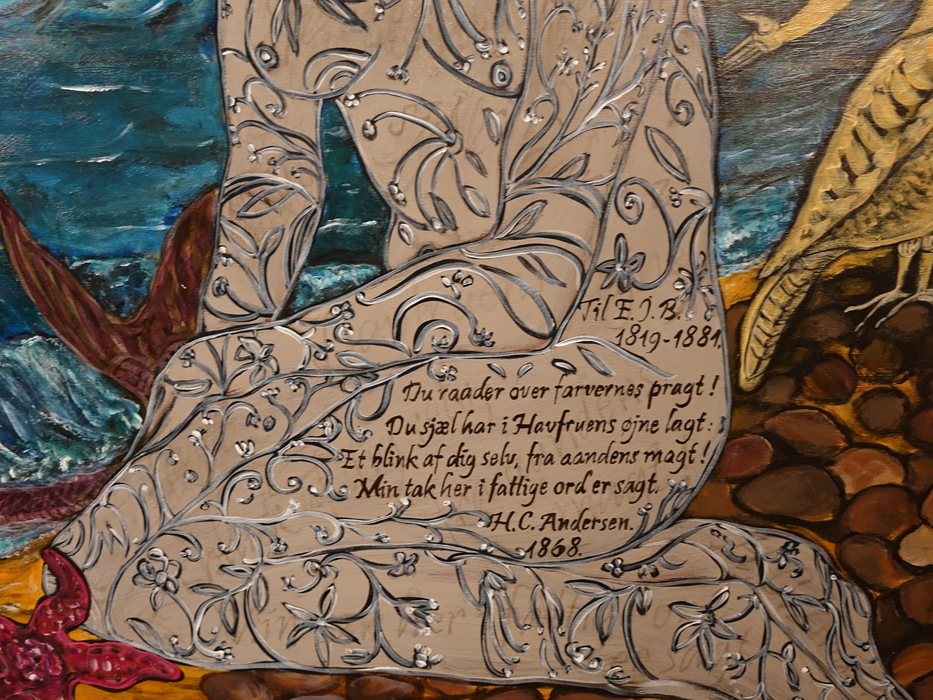 Til E. J. B.
1819-1881.
Du raader over farvernes pragt!
Du sjæl har i Havfruens øjne lagt:
Et blink af dig selv, fra aandens magt!
Min tak her i fattige ord er sagt.
H.C. Andersen.
1868.